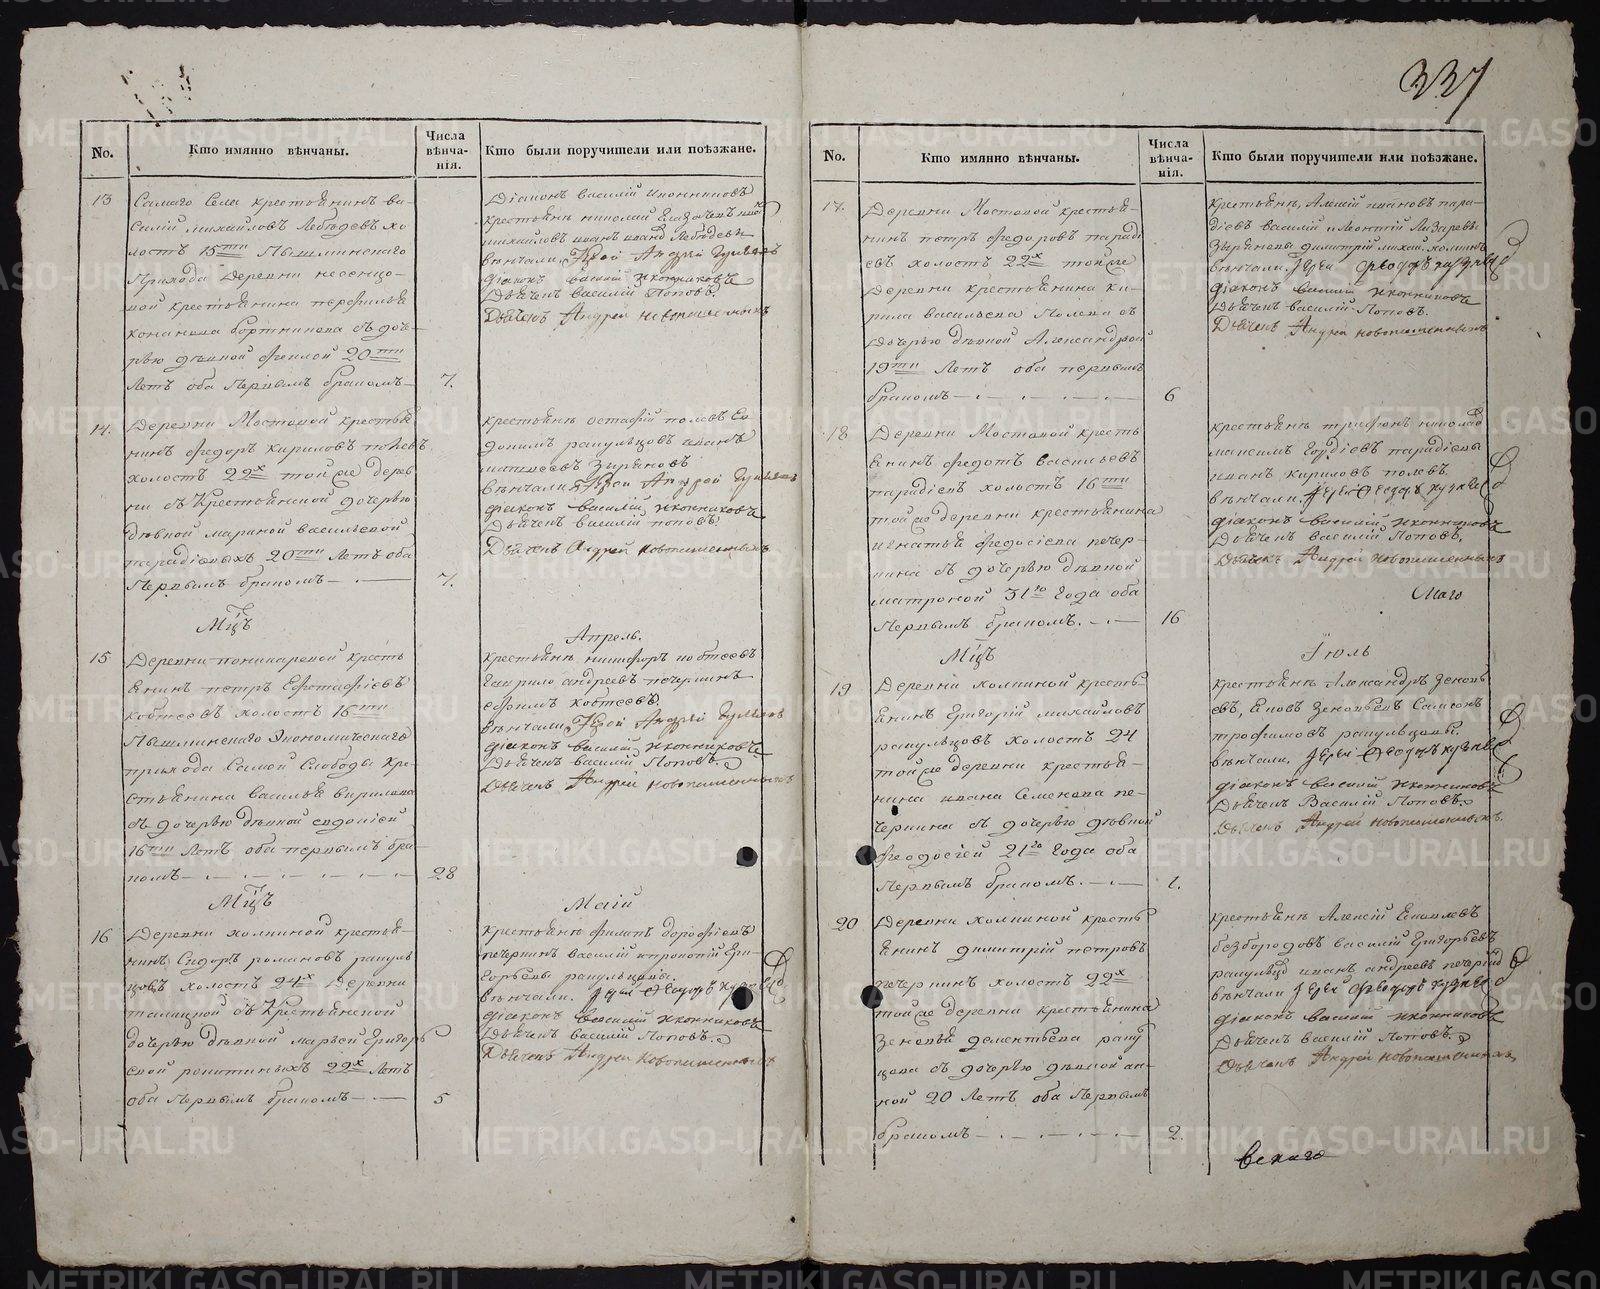 337
No.
Кто имянно вѣнчаны.
Числа вѣнча-нія.
Кто были поручители или поѣзжане.
13
Самаго Села крестьянинъ ва-
силій михайловъ Лебедевъ хо
лостъ 15ти Пышминскаго
Прихода Деревни
вой крестьянина перфилья
бортникова съ доче-
рью дѣвкой Феклой 20ти
Летъ оба Первымъ бракомъ
7.
Діаконъ василій иконниковъ
крестьяне николай
михайловъ иванъ Лебедевы
вѣнчали Андрей
діаконъ василій иконниковъ
Дьячекъ василій Поповъ.
Дьячекъ Андрей новопашенныхъ
14.
Деревни Мостовой крестья
нинъ Федоръ Кириловъ полевъ
холостъ 22х той же дерев
ни съ Крестьянской дочерью
дѣвкой мариной васильевой
парадіевыхъ 20ти Летъ оба
Первымъ бракомъ
7.
крестьяне остафій полевъ Ев
докимъ ракульцовъ иванъ
матвеевъ Зыряновъ
вѣнчали Андрей
діаконъ василій иконниковъ
Дьячекъ василій поповъ
Дьячекъ Андрей новопашенныхъ
Мцъ
Апрель.
15
Деревни пономаревой кресть
янинъ петръ Ефстафіевъ
коптеевъ холостъ 16ти
Пышминскаго Экономическаго
прихода Самой Слободы кре
стьянина василья кирилова
съ дочерью дѣвкой евдокіей
16ти Летъ оба первымъ бра-
комъ
28
крестьяне никифоръ коптеевъ
Гаврило андреевъ печеркинъ
ефимъ коптеевъ
вѣнчали Андрей
діаконъ василій иконниковъ
Дьячекъ василій Поповъ.
Дьячекъ Андрей новопашенныхъ
Мцъ
Маій
16
Деревни холкиной крестья-
нинъ Сидоръ романовъ ракуль
цовъ холостъ 24х Деревни
талицкой съ Крестьянской
дочерью дѣвкой марьей Григорь
евой 22х Летъ
оба Первымъ бракомъ
5
Крестьяне филипъ дорофіевъ
печеркинъ василій прокопій Гри-
горьевы ракульцовы.
вѣнчали. Іерей Феодоръ
діаконъ василій иконниковъ
Дьячекъ василій Поповъ.
Дьячекъ Андрей новопашенныхъ
No.
Кто имянно вѣнчаны.
Числа вѣнча-нія.
Кто были поручители или поѣзжане.
17.
Деревни Мостовой крестья-
нинъ петръ Федоровъ паради
евъ холостъ 22х той же
Деревни крестьянина ки-
рила васильева Полева съ
дочерью дѣвкой Александрой
19ти Летъ оба первымъ
бракомъ
6
крестьяне Алексій ивановъ пара-
діевъ василій и Леонтій Лазаревы
Зыряновы димитрій михай. холкинъ
вѣнчали Іерей Феодоръ
діаконъ василій иконниковъ
Дьячекъ василій Поповъ.
Дьячекъ Андрей новопашенныхъ
18
Деревни Мостовой кресть
янинъ федотъ васильевъ
парадіевъ холостъ 16ти
той же деревни крестьянина
игнатья федосіева печер-
кина съ дочерью дѣвкой
матроной 31го Года оба
Первымъ бракомъ.
16
крестьяне трифонъ николай
максимъ Гордіевъ парадіевы
иванъ кириловъ полевъ.
вѣнчали Іерей Феодоръ
діаконъ василій иконниковъ
Дьячекъ василій Поповъ.
Дьячекъ Андрей новопашенныхъ
Маго
Мцъ
Іюль
19
Деревни холкиной кресть-
янинъ Григорій михайловъ
ракульцовъ холостъ 24
той же деревни крестья-
нина ивана Семенова пе-
черкина съ дочерью дѣвкой
феодосіей 21го Года оба
Первымъ бракомъ.
1.
крестьяне Александръ Зеновь
евъ, Зеновьевъ Самсонъ
трофимовъ ракульцовы.
вѣнчали. Іерей Феодоръ
діаконъ василій иконниковъ
Дьячекъ Василій Поповъ.
Дьячекъ Андрей новопашенныхъ
20
Деревни холкиной кресть
янинъ димитрій петровъ
печеркинъ холостъ 22х
той же деревни крестьянина
Зеновья дементьева раку
цова съ дочерью дѣвкой ан-
ной 20 Летъ оба Первымъ
бракомъ
2.
крестьяне Алексій Яковлевъ
безбородовъ василій Григорьевъ
ракульцо иванъ андреевъ
вѣнчали Іерей Феодоръ
діаконъ василій иконниковъ
Дьячекъ василій Поповъ.
Дьячекъ Андрей новопашенныхъ
METRIKI.GASO-URAL.RU